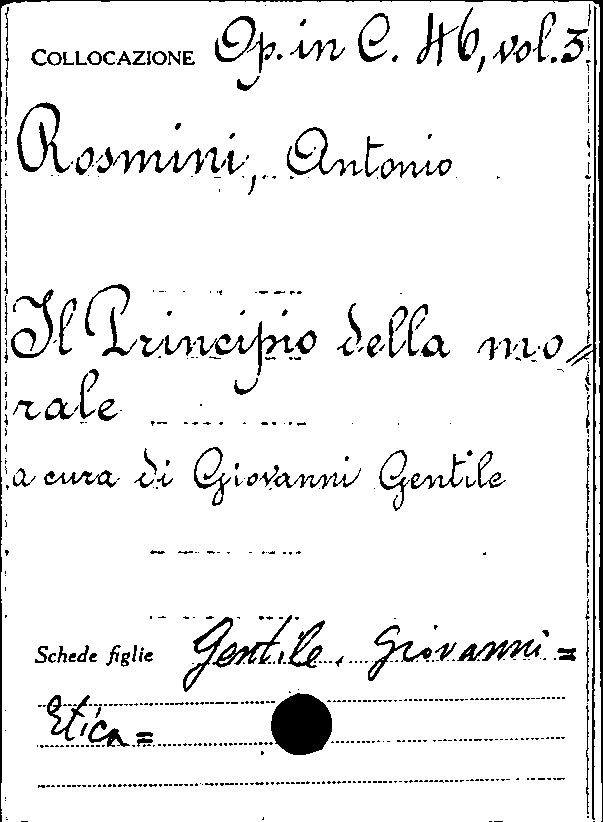 COLLOCAZIONE Op. in C. 46, vol. 3
Rosmini, Antonio
Il Principio della mo=
rale
a cura di Giovanni Gentile
Schede figlie Gentile. Giovanni =
Etica =